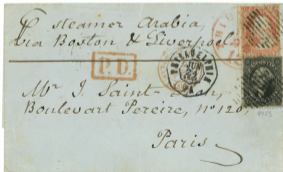 p steamer Arabia
Via Boston & Liverpool
P.D.
PHILADELPHIE
Mr. J. Saint-
Boulevart Pereire, No 120,
Paris